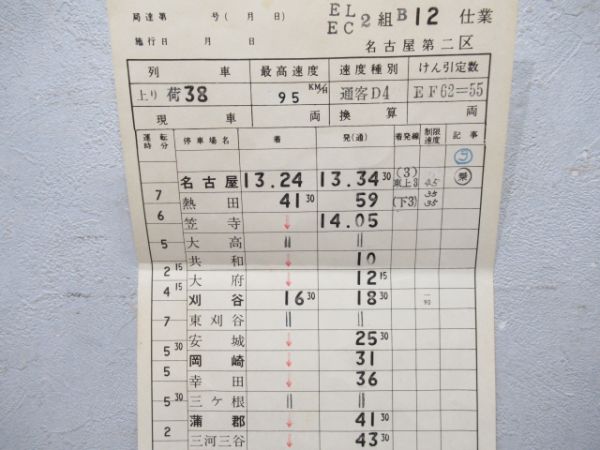 局達第 号(月 日) EL EC 2組B12仕業
施行日 月 日 名古屋第二区
列車 最高速度 速度種別 けん引定数
上り 荷38 95KM/H 通客D4 EF62=55
現車 両 換算 両
運転時分 停車場名 着 発(通) 着発線 制限速度 記事
名古屋 13.24 13.34 30 (3) 東上3 45 乗
7 熱田 41 30 59 (下3) 35 35
6 笠寺 ↓ 14.05
大高 || ||
5 共和 ↓ 10
2 15 大府 ↓ 12 15
4 15 刈谷 16 30 18 30 90
東刈谷 || ||
7 安城 ↓ 25 30
5 30 岡崎 ↓ 31
5 幸田 ↓ 36
三ケ根 || ||
5 30 蒲郡 ↓ 41 30
2 三河三谷 ↓ 43 30